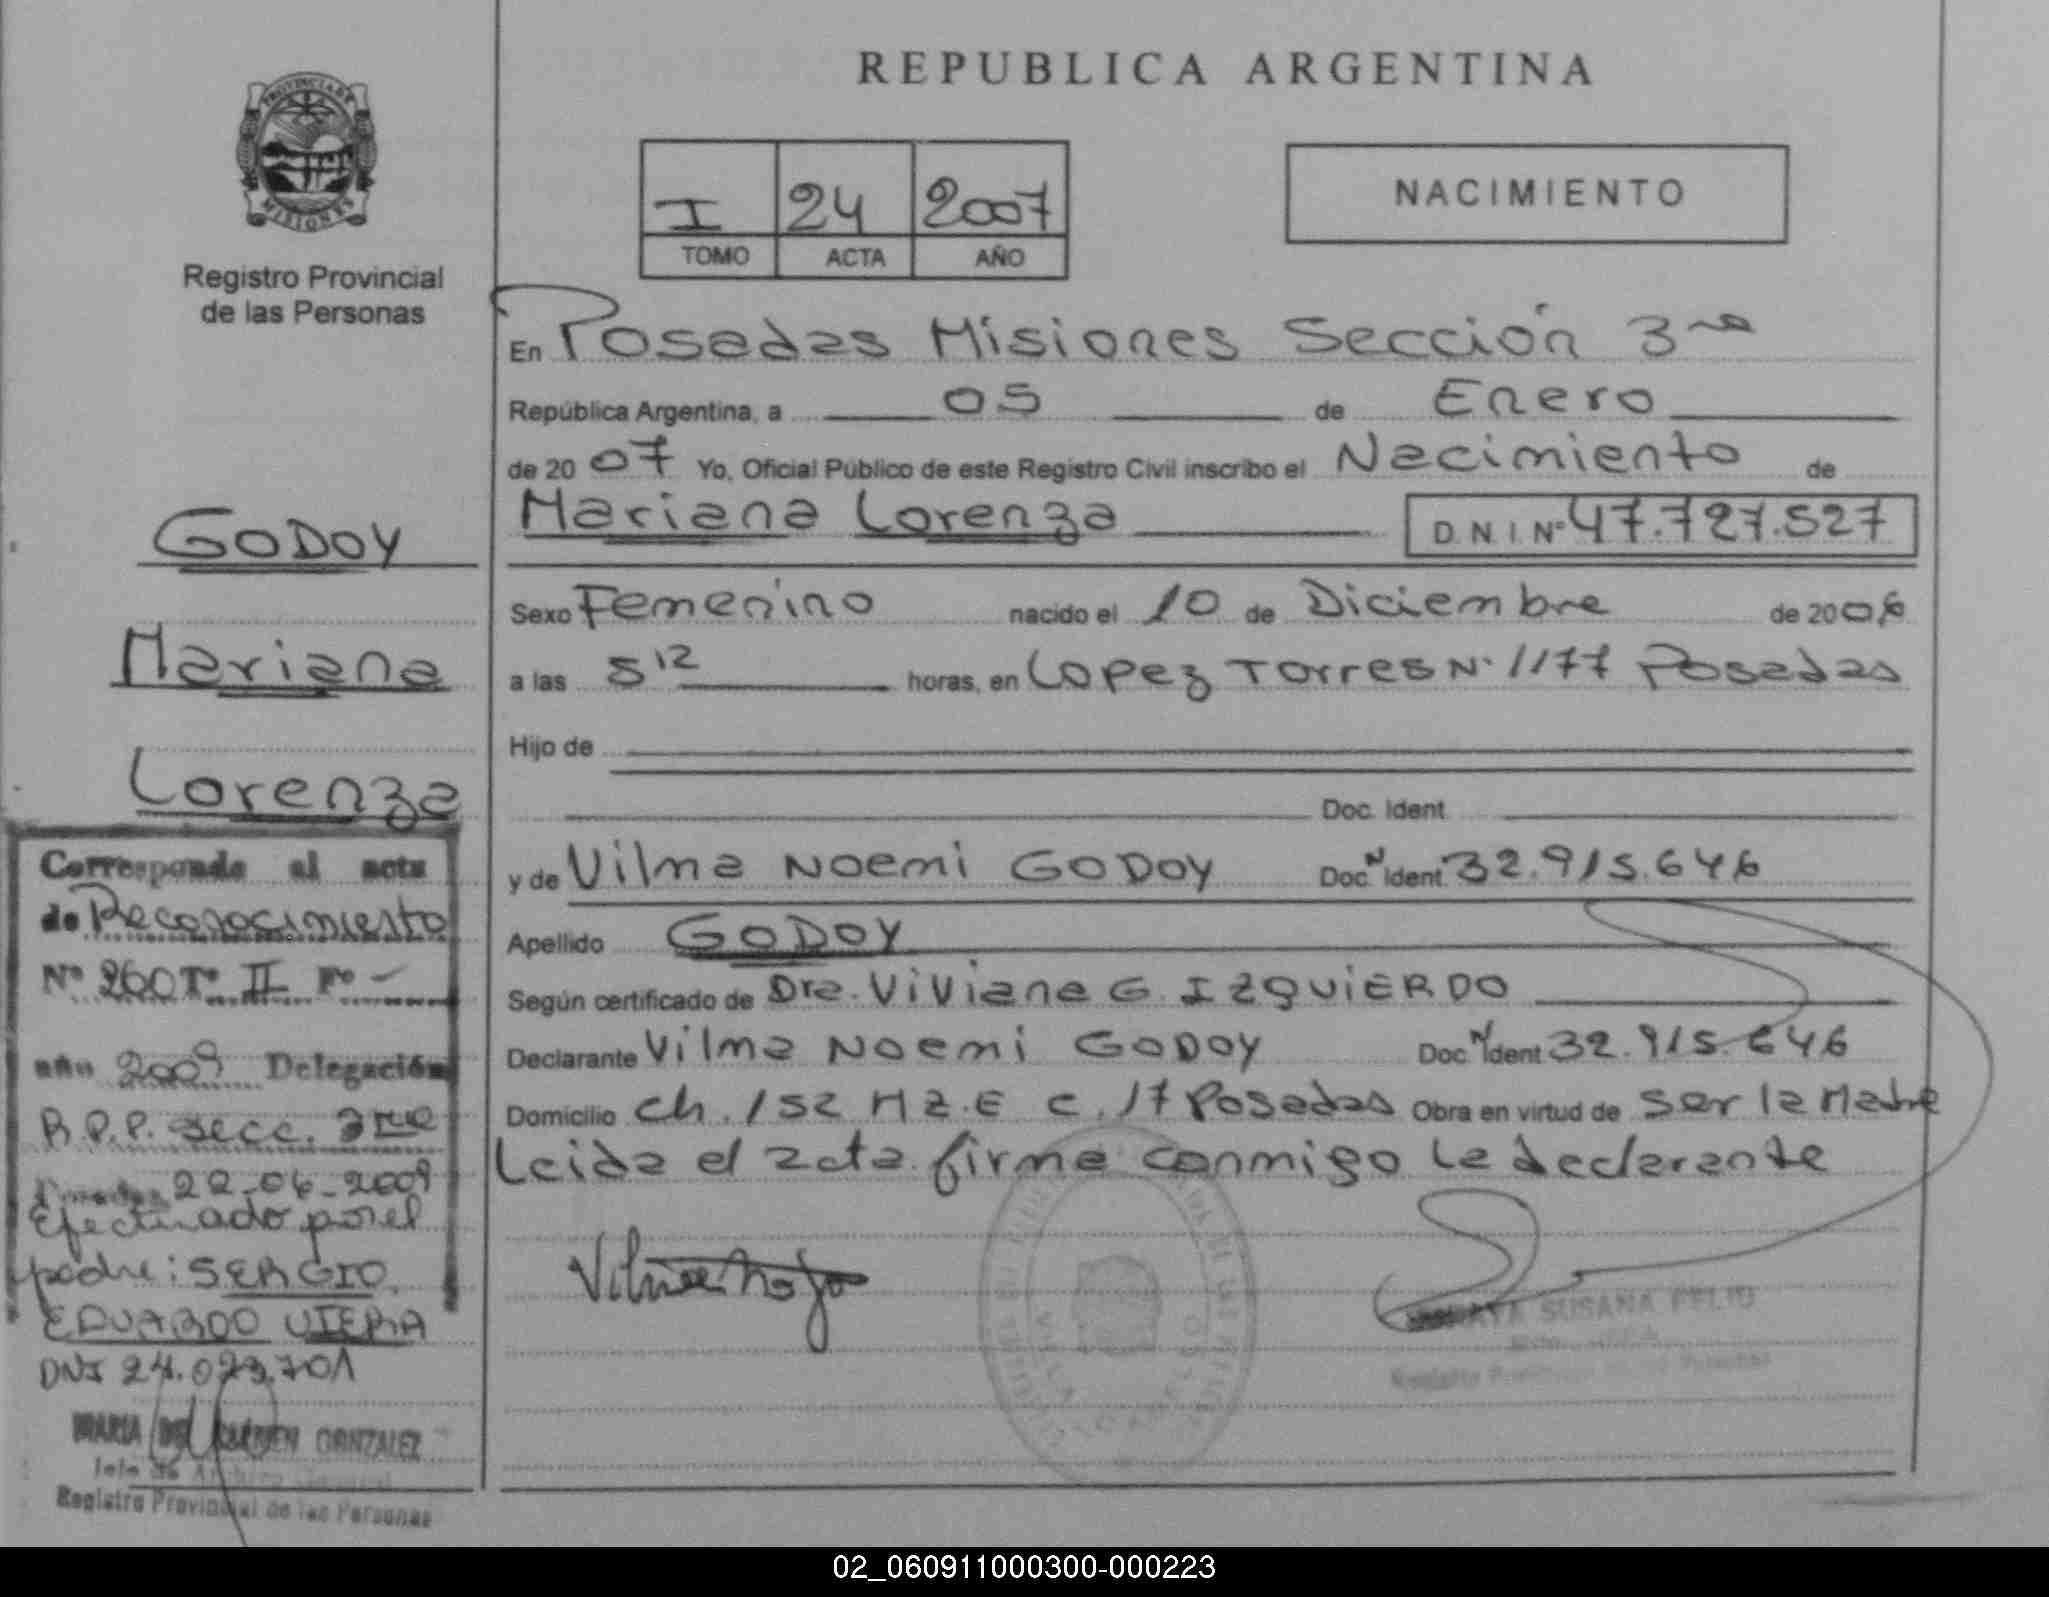 PROVINCIA DE
MISIONES
Registro Provincial
de las Personas
GODOY
Mariana
Lorenza
Corresponde al acta
de Reconocimiento
Nº 260 Tº II Fº -
año 2009 Delegación
R.P.P. secc. 3ra
22-06-2009
Efectuado por el
padre: SERGIO
EDUARDO VIERA
DNI 24.023.701
MARIA DEL CARMEN GONZALEZ
Jefe de Archivo General
Registro Provincial de las Personas
REPUBLICA ARGENTINA
I 24 2007
TOMO ACTA AÑO
NACIMIENTO
En Posadas Misiones Sección 3ra
República Argentina, a 05 de Enero
de 2007 Yo, Oficial Público de este Registro Civil inscribo el Nacimiento de
Mariana Lorenza D.N.I. Nº 47.727.527
Sexo Femenino nacido el 10 de Diciembre de 2006
a las 5 12 horas, en Lopez Torres Nº 1177 Posadas
Hijo de
Doc. Ident.
y de Vilma Noemi GODOY Doc. N Ident. 32.915.646
Apellido GODOY
Según certificado de Dra. Viviana G. IZQUIERDO
Declarante Vilma Noemi GODOY Doc. N Ident 32.915.646
Domicilio Ch. 152 Mz. E C. 17 Posadas Obra en virtud de ser la Madre
Leida el acta firma conmigo la declarante
SUSANA FELIU
Registro Provincial de las Personas
02_060911000300-000223